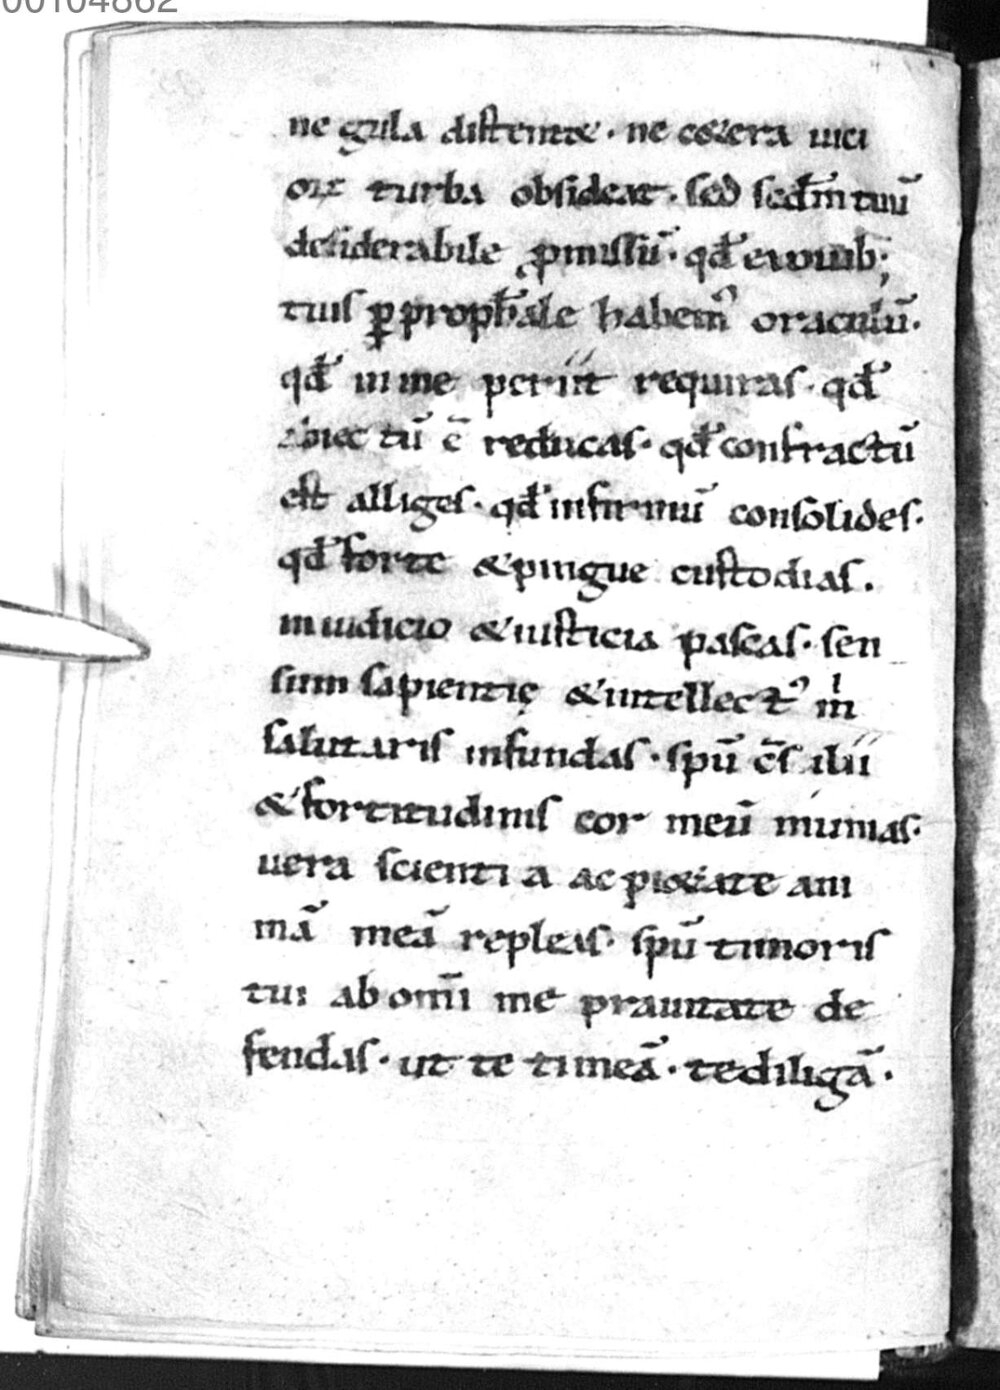 00104862
ne gula distendꝫ · ne cetera uici
orꝝ turba obsideat · sed scd̄m tuū
desiderabile ꝓmissū · qd̄ e
tuis ꝑ proph̄ale habem᷒ oraculū ·
qd̄ in me periit requiras · qd̄
tū ē reducas · qd̄ confractū
est alliges · qd̄ infirmū consolides ·
qd̄ forte & pingue custodias .
in iudicio & iusticia pascas · sen
sum sapientię & intellect᷒ m̄
salutaris infundas · spū c̄s ilii
& fortitudinis cor meū munias ·
uera scientia ac pietate ani
mā meā repleas · spū timoris
tui ab om̄i me prauitate de
fendas · ut te timeā · te diligā ·